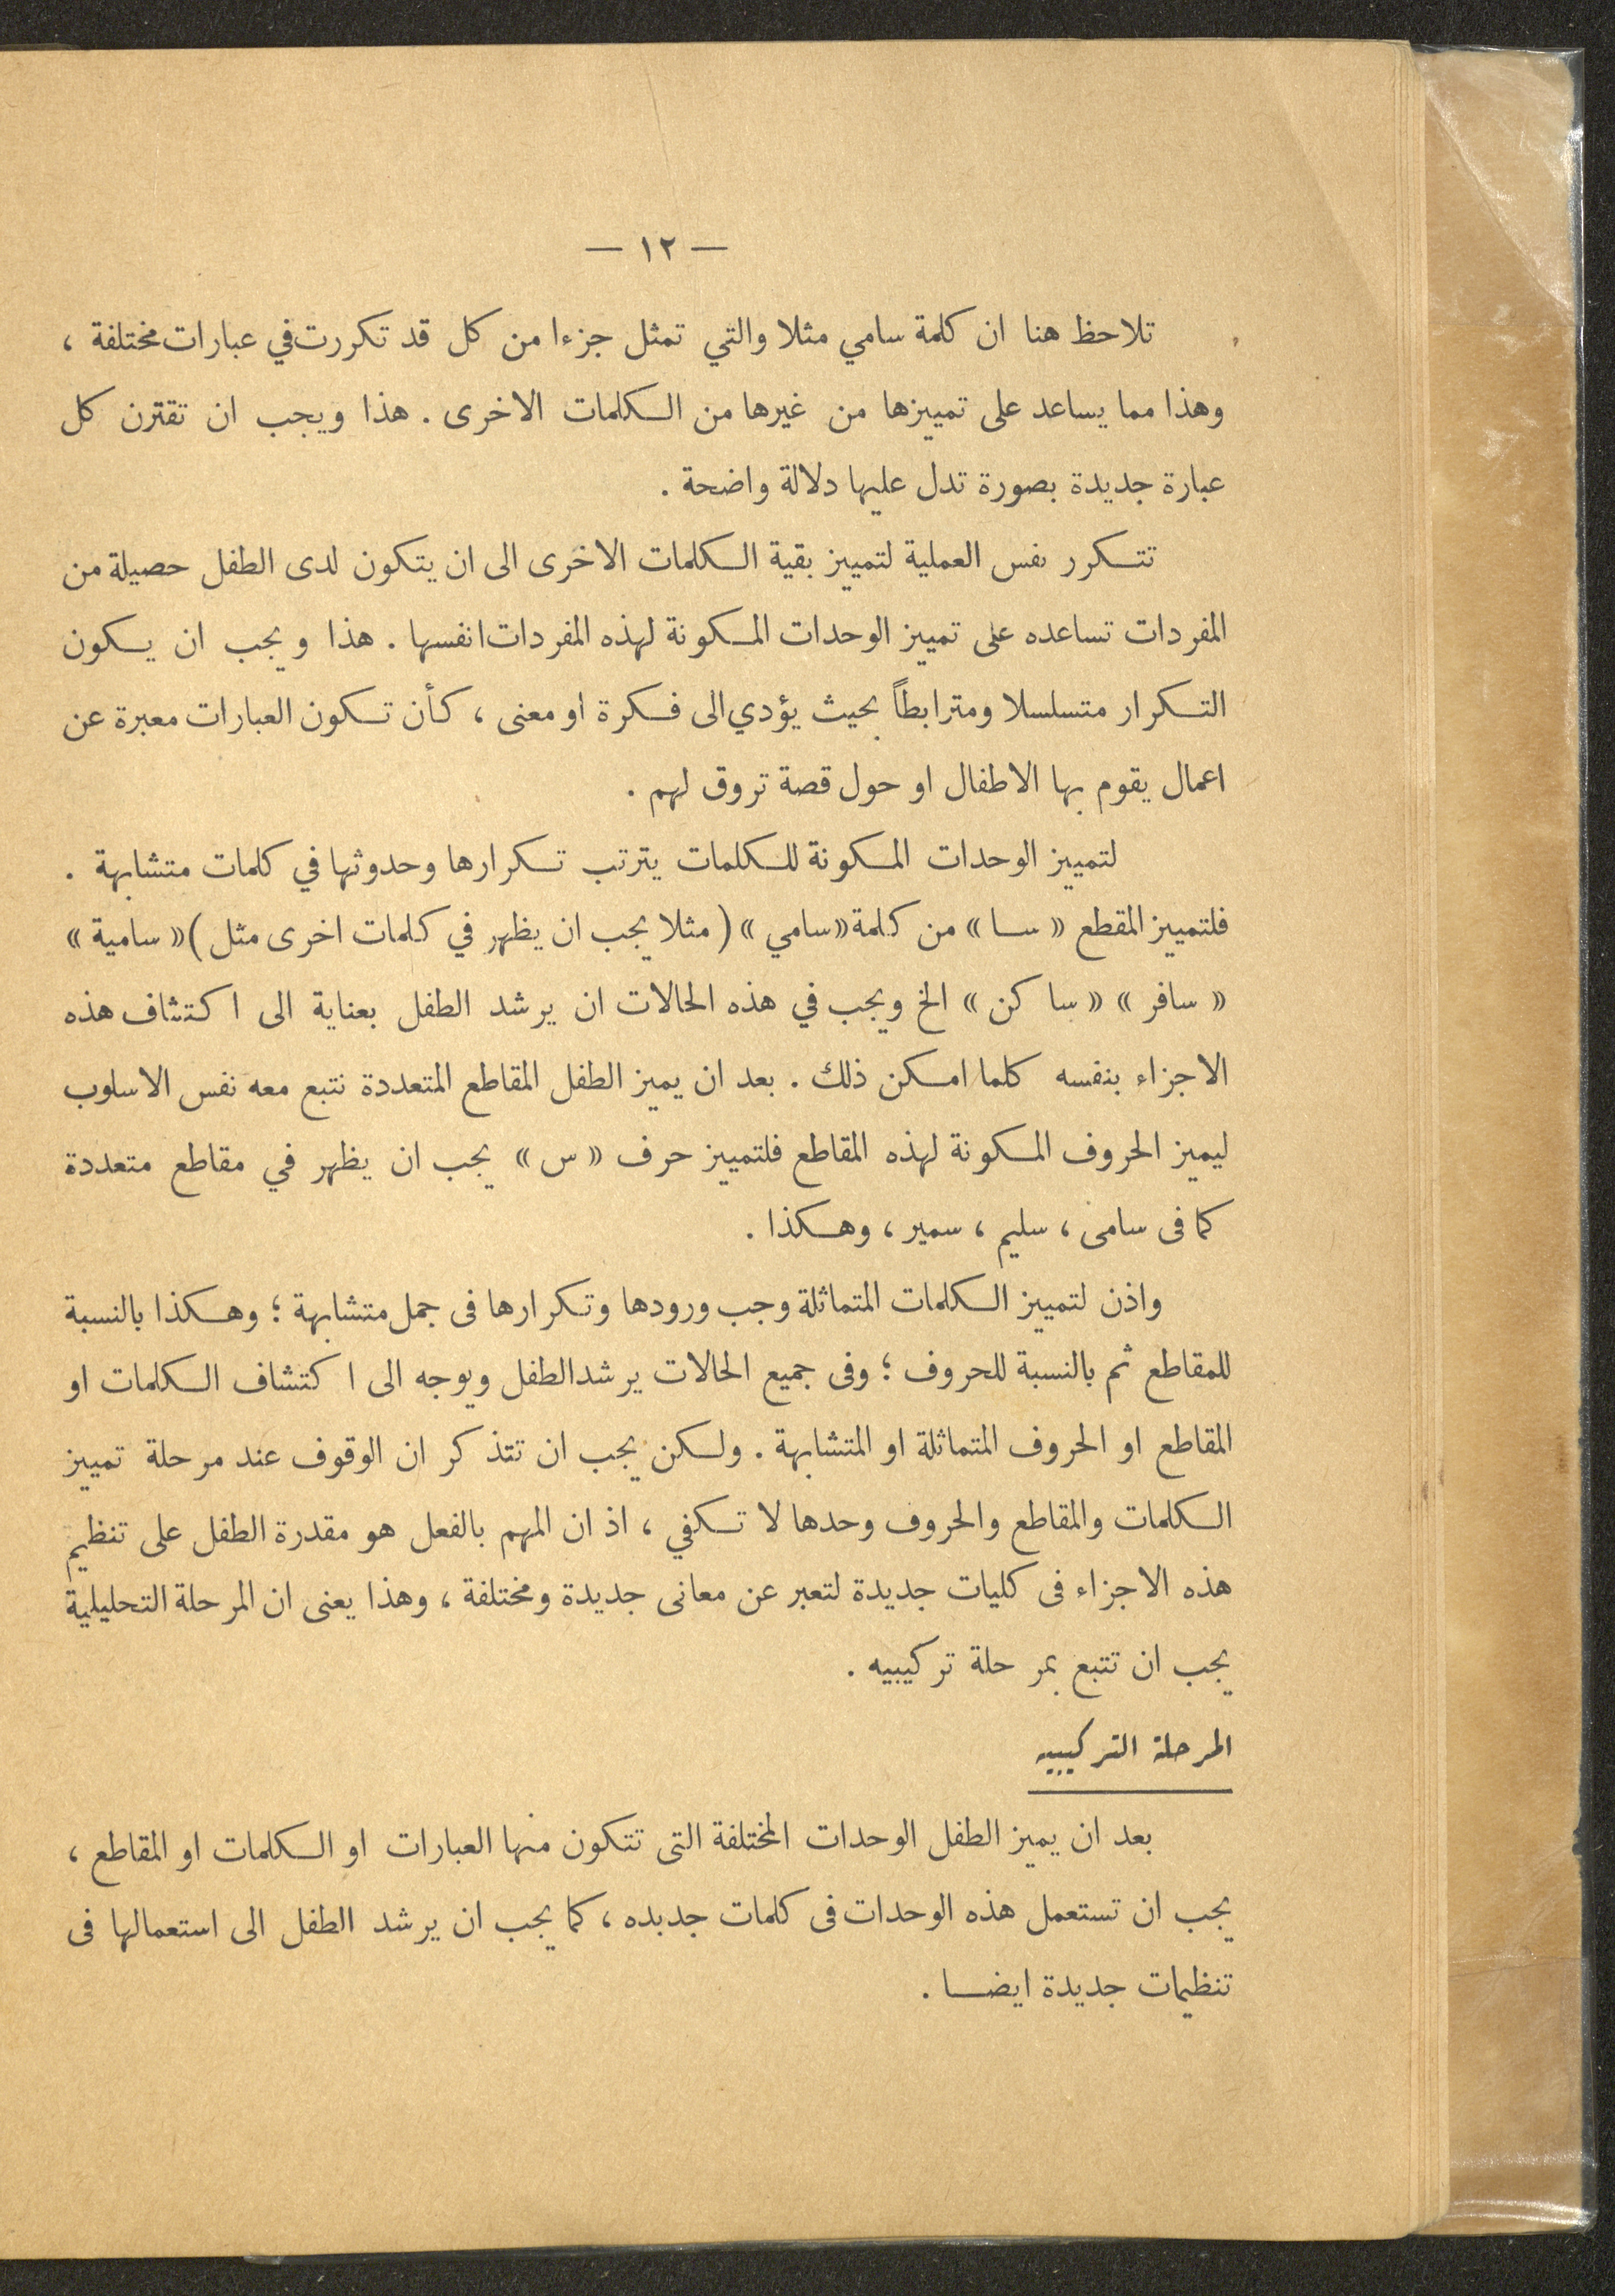 — ١٢ —
تلاحظ هنا ان كلمة سامي مثلا والتي تمثل جزءا من كل قد تكررت في عبارات مختلفة ،
وهذا مما يساعد على تمييزها من غيرها من الكلمات الاخرى . هذا ويجب ان تقترن كل
عبارة جديدة بصورة تدل عليها دلالة واضحة .
تتكرر نفس العملية لتمييز بقية الكلمات الاخرى الى ان يتكون لدى الطفل حصيلة من
المفردات تساعده على تمييز الوحدات المكونة لهذه المفردات انفسها . هذا ويجب ان يكون
التكرار متسلسلا ومترابطاً بحيث يؤدي الى فكرة او معنى ، كأن تكون العبارات معبرة عن
اعمال يقوم بها الاطفال او حول قصة تروق لهم .
لتمييز الوحدات المكونة للكلمات يترتب تكرارها وحدوثها في كلمات متشابهة .
فلتمييز المقطع « سا » من كلمة « سامي » ( مثلا يجب ان يظهر في كلمات اخرى مثل ) « سامية »
« سافر » « ساكن » الخ ويجب في هذه الحالات ان يرشد الطفل بعناية الى اكتشاف هذه
الاجزاء بنفسه كلما امكن ذلك . بعد ان يميز الطفل المقاطع المتعددة نتبع معه نفس الاسلوب
ليميز الحروف المكونة لهذه المقاطع فلتمييز حرف « س » يجب ان يظهر في مقاطع متعددة
كما فى سامى ، سليم ، سمير ، وهكذا .
واذن لتمييز الكلمات المتماثلة وجب ورودها وتكرارها فى جمل متشابهة ؛ وهكذا بالنسبة
للمقاطع ثم بالنسبة للحروف ؛ وفى جميع الحالات يرشد الطفل ويوجه الى اكتشاف الكلمات او
المقاطع او الحروف المتماثلة او المتشابهة . ولكن يجب ان تتذكر ان الوقوف عند مرحلة تمييز
الكلمات والمقاطع والحروف وحدها لا تكفي ، اذ ان المهم بالفعل هو مقدرة الطفل على تنظيم
هذه الاجزاء فى كليات جديدة لتعبر عن معانى جديدة ومختلفة ، وهذا يعنى ان المرحلة التحليلية
يجب ان تتبع بمرحلة تركيبيه .
المرحلة التركيبيه
بعد ان يميز الطفل الوحدات المختلفة التى تتكون منها العبارات او الكلمات او المقاطع ،
يجب ان تستعمل هذه الوحدات فى كلمات جديده ، كما يجب ان يرشد الطفل الى استعمالها فى
تنظيمات جديدة ايضا .